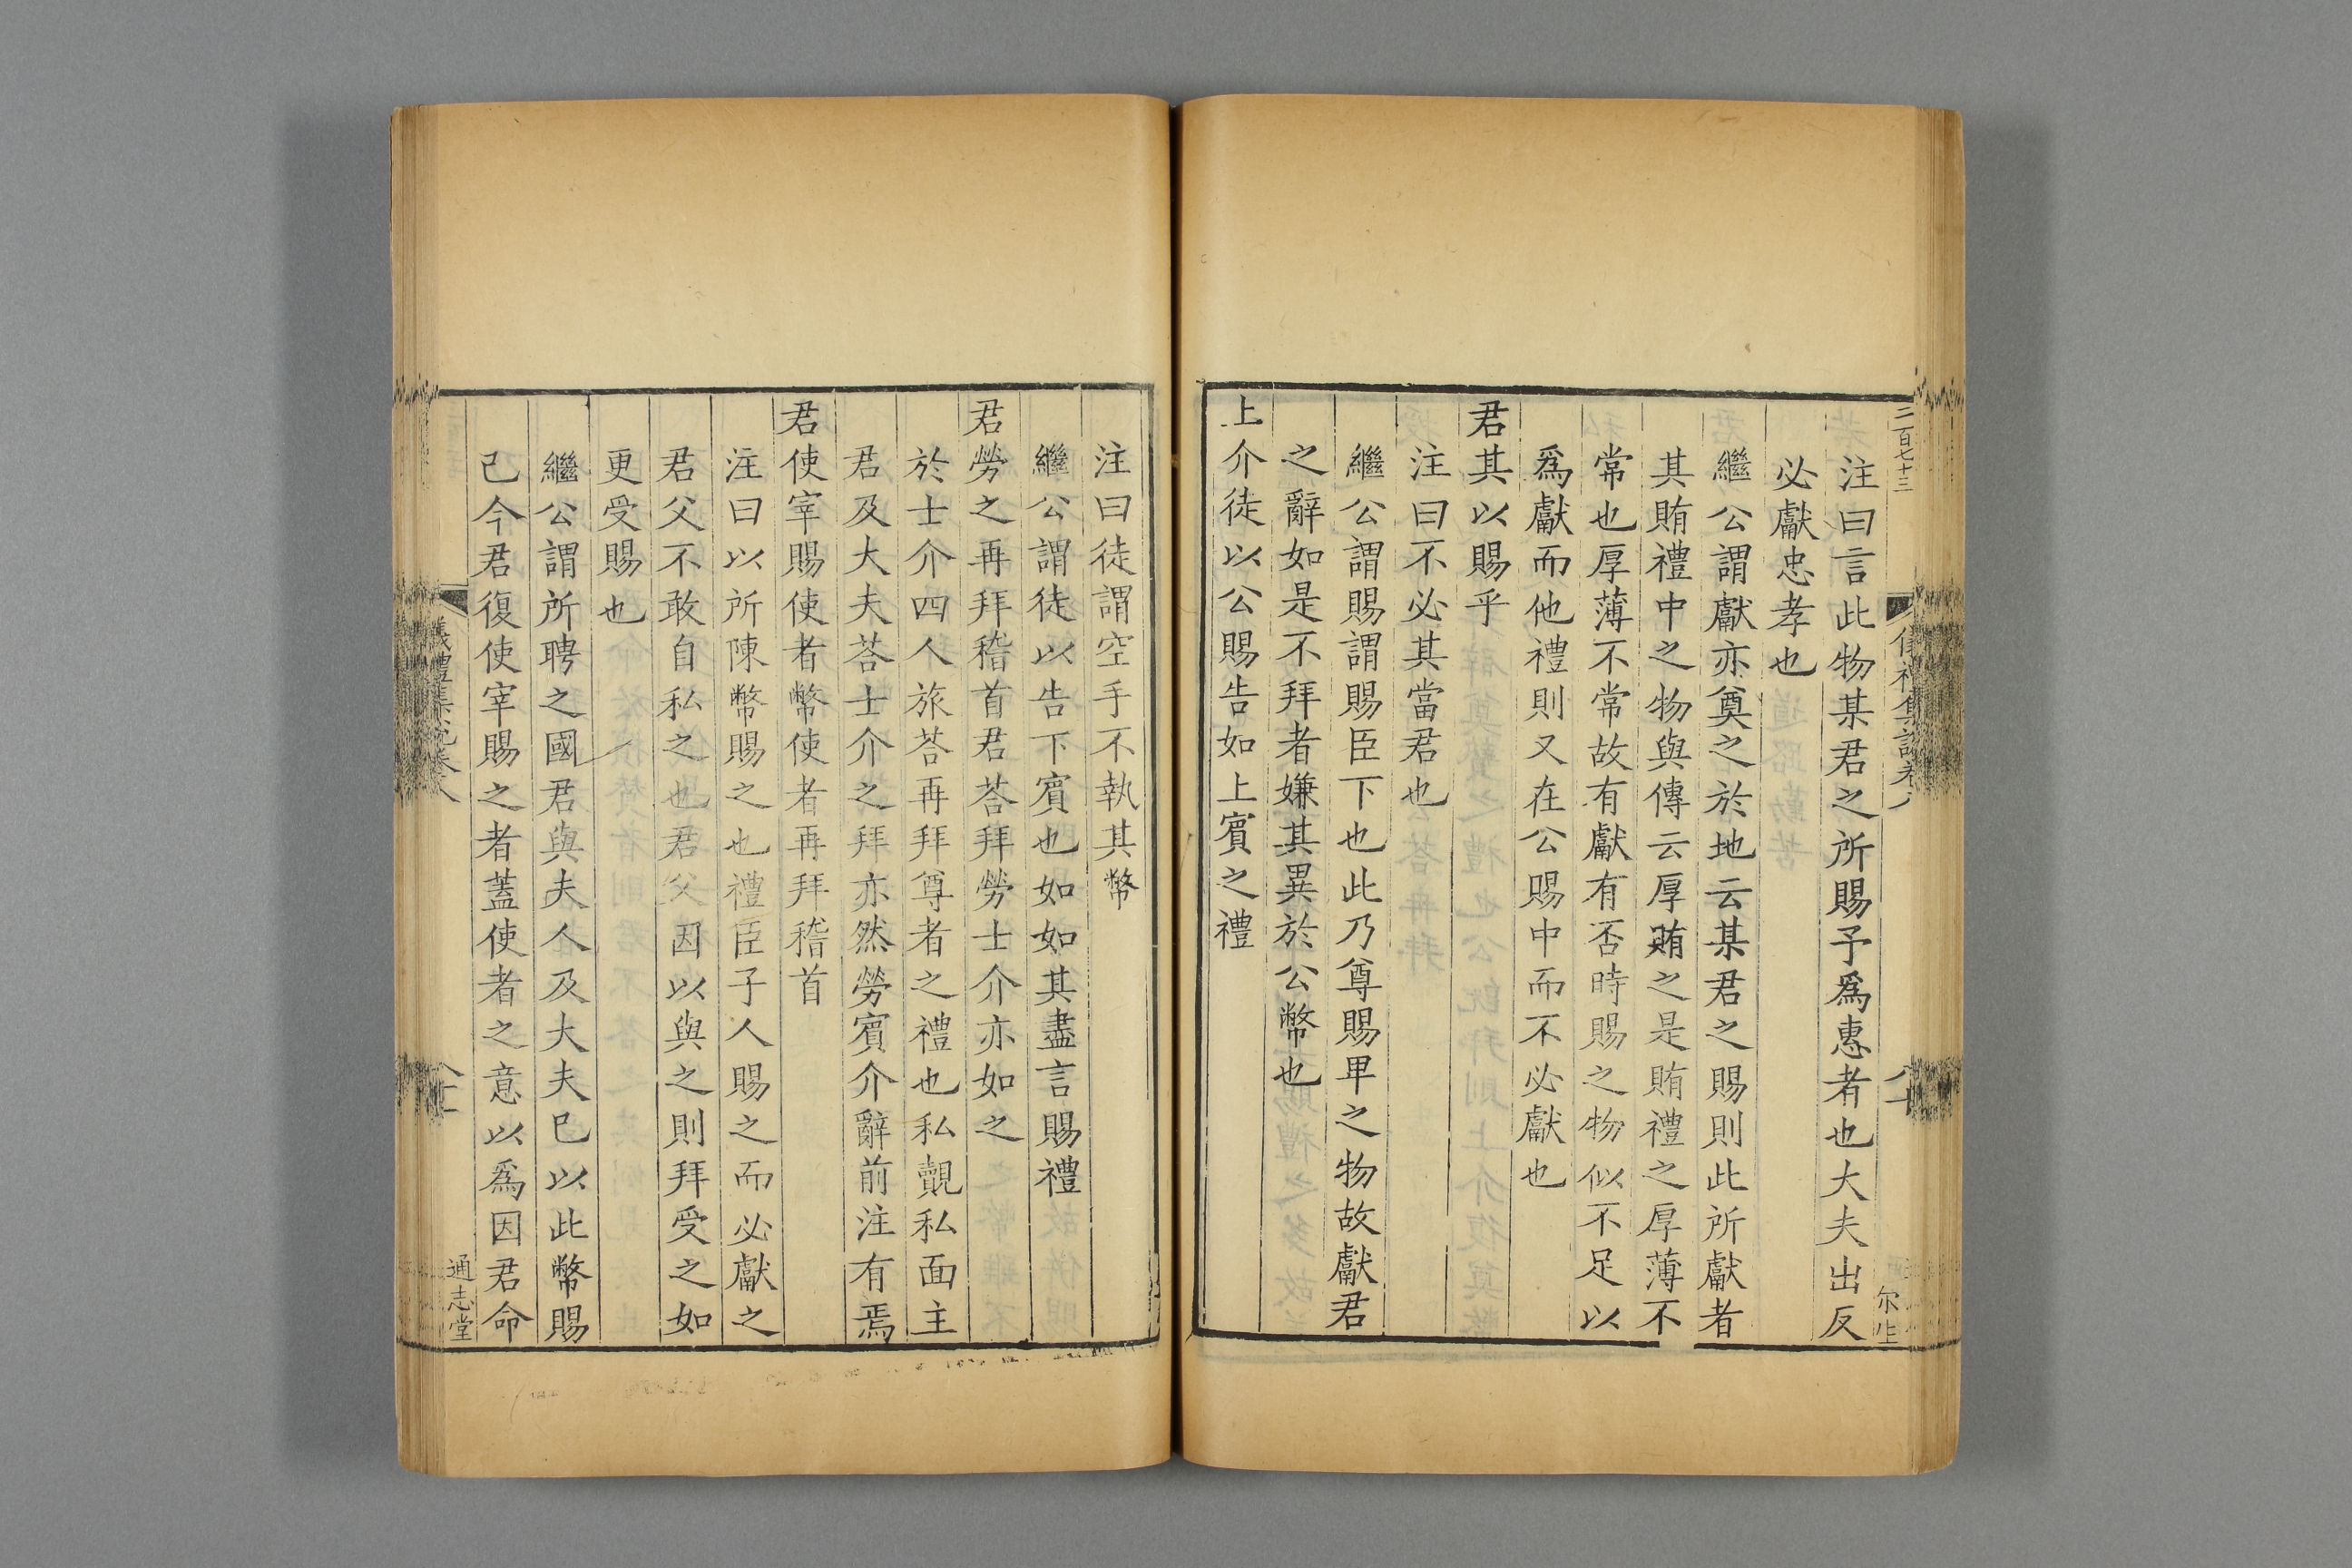 二百七十三
注曰言此物某君之所賜予爲惠者也大夫出反
必獻忠孝也
繼公謂獻亦奠之於地云某君之賜則此所獻者
其賄禮中之物與傳云厚賄之是賄禮之厚薄不
常也厚薄不常故有獻有否時賜之物似不足以
爲獻而他禮則又在公賜中而不必獻也
君其以賜乎
注曰不必其當君也
繼公謂賜謂賜臣下也此乃尊賜卑之物故獻君
之辭如是不拜者嫌其異於公幣也
上介徒以公賜告如上賓之禮
注曰徒謂空手不執其幣
繼公謂徒以告下賓也如如其盡言賜禮
君勞之再拜稽首君荅拜勞士介亦如之
於士介四人旅荅再拜尊者之禮也私覿私面主
君及大夫荅士介之拜亦然勞賓介辭前注有焉
君使宰賜使者幣使者再拜稽首
注曰以所陳幣賜之也禮臣子人賜之而必獻之
君父不敢自私之也君父因以與之則拜受之如
更受賜也
繼公謂所聘之國君與夫人及大夫已以此幣賜
己今君復使宰賜之者蓋使者之意以爲因君命
儀禮集說卷八
通志堂